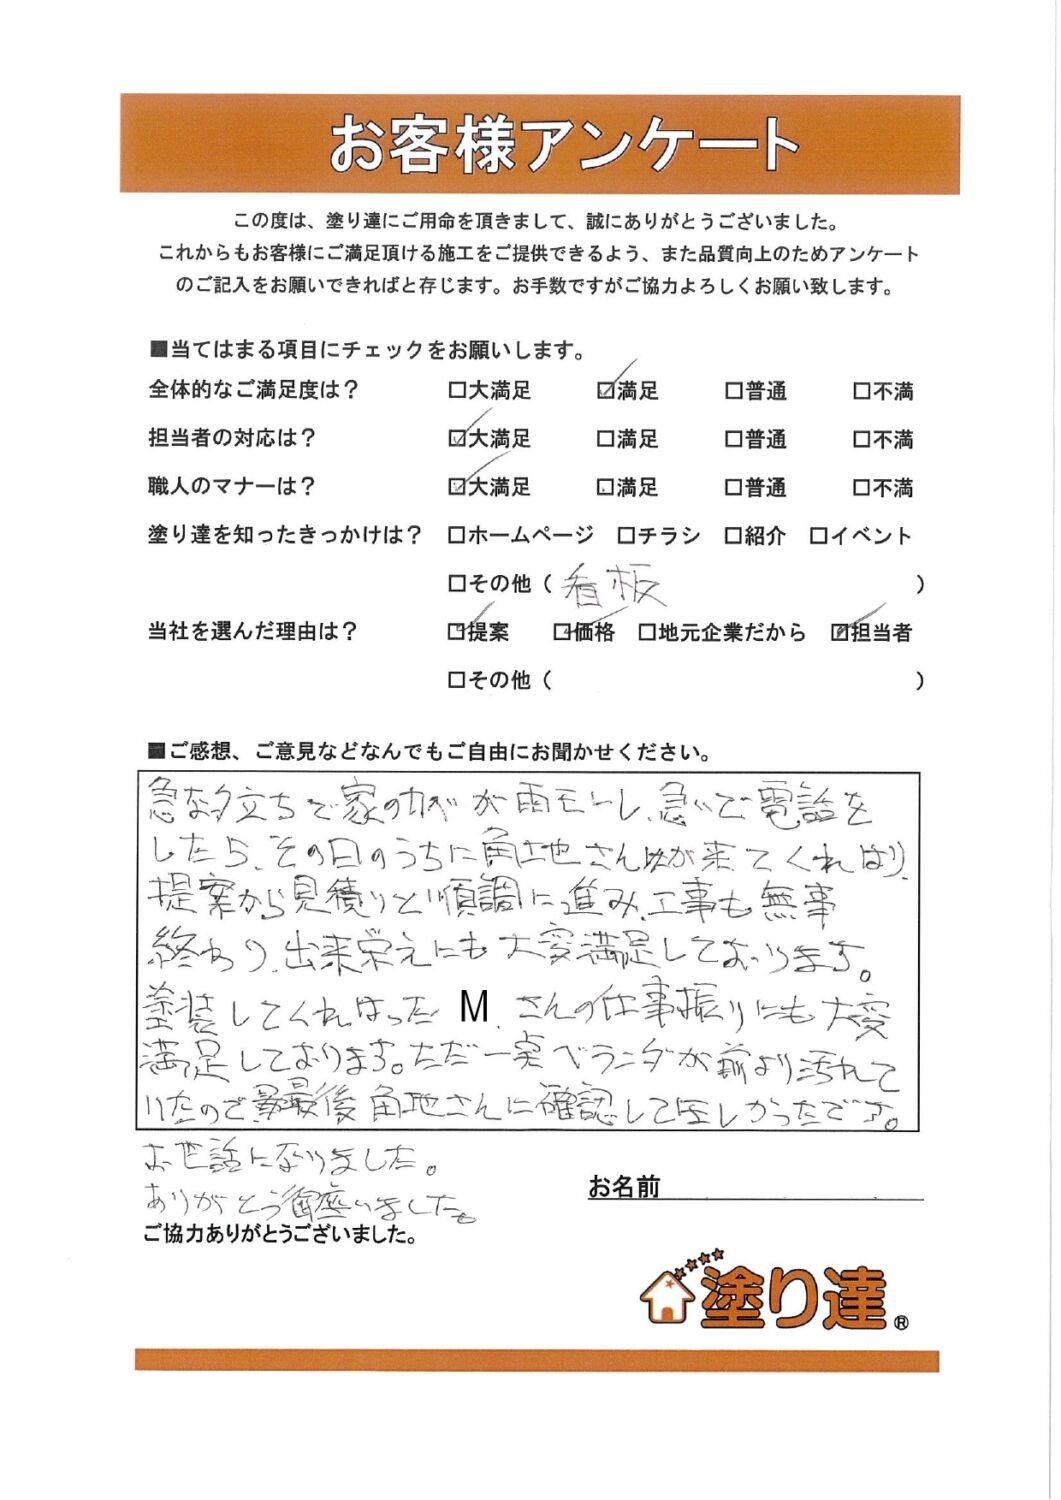 お客様アンケート
この度は、塗り達にご用命を頂きまして、誠にありがとうございました。
これからもお客様にご満足頂ける施工をご提供できるよう、また品質向上のためアンケート
のご記入をお願いできればと存じます。お手数ですがご協力よろしくお願い致します。
■当てはまる項目にチェックをお願いします。
全体的なご満足度は？ □大満足 ☑満足 □普通 □不満
担当者の対応は？ ☑大満足 □満足 □普通 □不満
職人のマナーは？ ☑大満足 □満足 □普通 □不満
塗り達を知ったきっかけは？ □ホームページ □チラシ □紹介 □イベント
□その他（ 看板 ）
当社を選んだ理由は？ ☑提案 ☑価格 □地元企業だから ☑担当者
□その他（ ）
■ご感想、ご意見などなんでもご自由にお聞かせください。
急な夕立ちで家のカベが雨モーレ、急いで電話を
したら、その日のうちに角地さんが来てくれはり、
提案から見積りと順調に進み、工事も無事
終わり、出来栄えにも大変満足しております。
塗装してくれはった M さんの仕事振りにも大変
満足しております。ただ一点ベランダが前より汚れて
いたので、最後角地さんに確認してほしかったです。
お世話になりました。
ありがとう御座いました。
お名前
ご協力ありがとうございました。
塗り達®